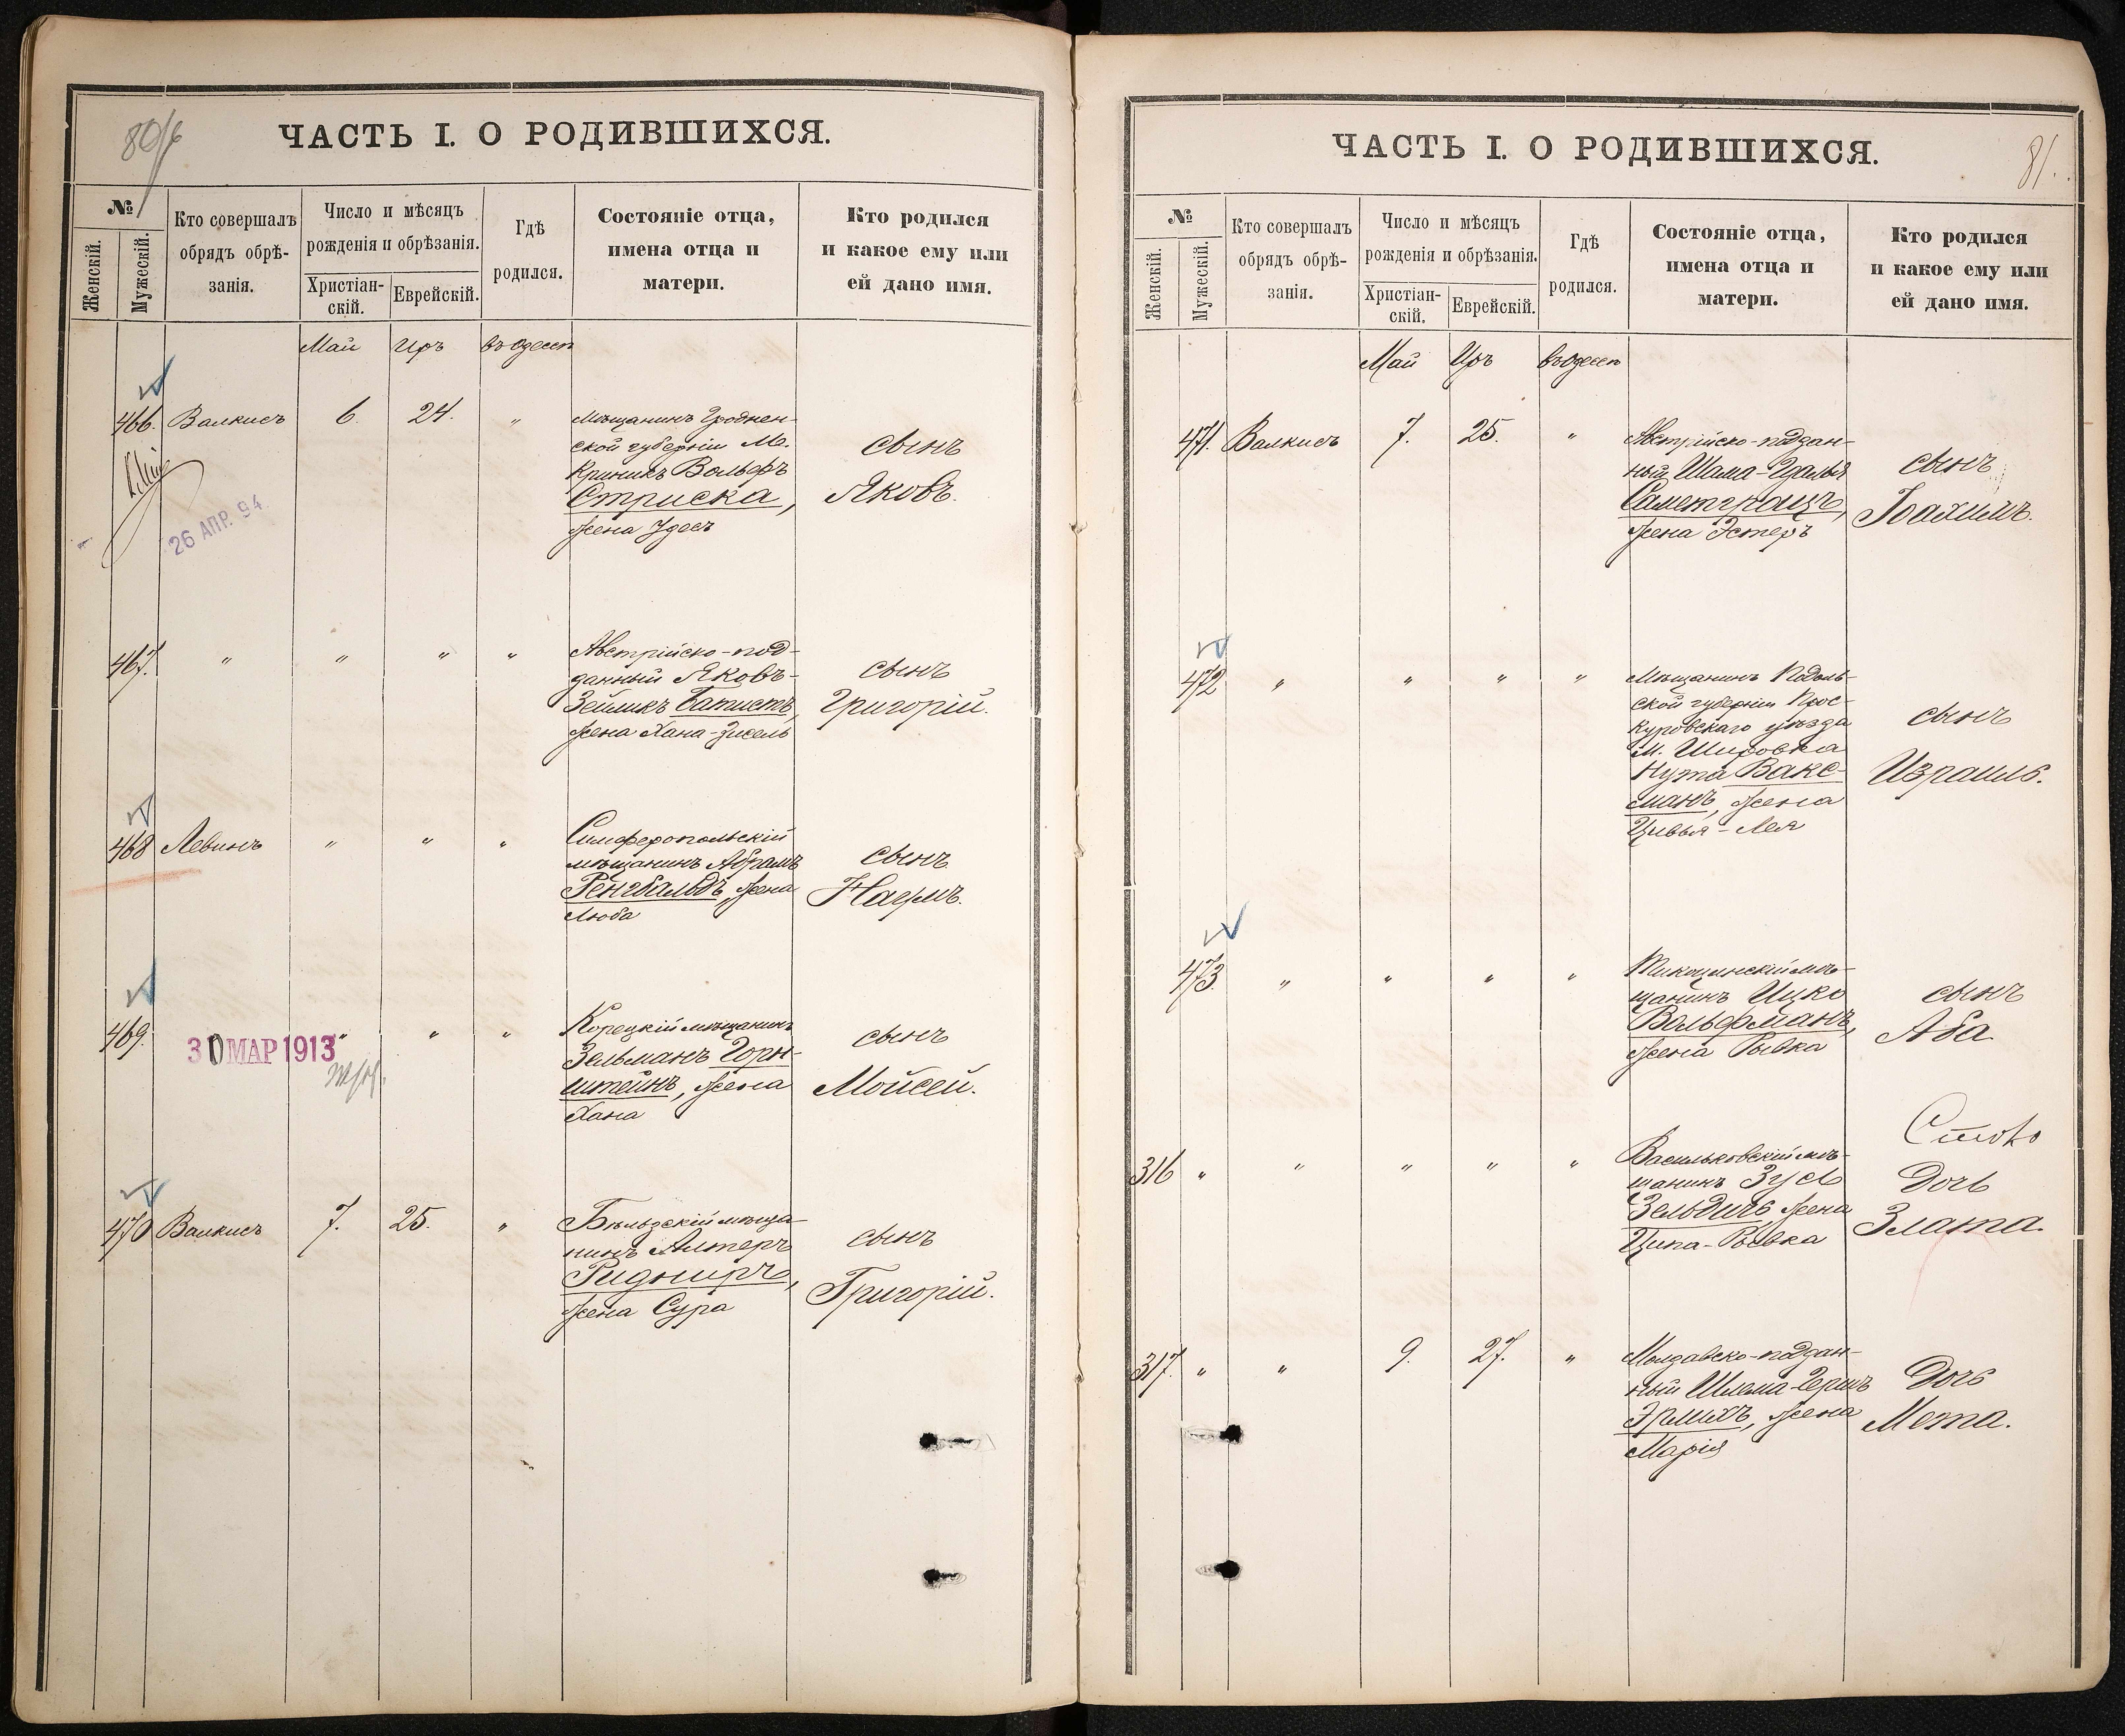 80/б
ЧАСТЬ I. О РОДИВШИХСЯ.
№
Женскій.
Мужескій.
Кто совершалъ
обрядъ обрѣ-
занія.
Число и мѣсяцъ
рожденія и обрѣзанія.
Христіан-
скій.
Еврейскій.
Гдѣ
родился.
Состояніе отца,
имена отца и
матери.
Кто родился
и какое ему или
ей дано имя.
Май Иръ въ Одессѣ
466. Валкисъ 6. 24. "
Мѣщанинъ Гроднен-
ской губерніи М.
Криникъ Вольфъ
Стриска,
жена Удесъ
сынъ
Яковъ.
26 АПР. 94.
467. " " " "
Австрійско-под-
данный Яковъ-
Зейликъ Батистъ,
жена Хана-Зисель
сынъ
Григорій.
468 Левинъ " " "
Симферопольскій
мѣщанинъ Абрамъ
Ренгбальдъ, жена
Люба
сынъ
Наумъ.
469. " " "
30 МАР 1913
Корецкій мѣщанинъ
Зельманъ Горн-
штейнъ, жена
Хана
сынъ
Мойсей.
470 Валкисъ 7. 25. "
Бѣльзскій мѣща-
нинъ Алтеръ
Ридниръ,
жена Сура
сынъ
Григорій.
ЧАСТЬ I. О РОДИВШИХСЯ.
81.
№
Женскій.
Мужескій.
Кто совершалъ
обрядъ обрѣ-
занія.
Число и мѣсяцъ
рожденія и обрѣзанія.
Христіан-
скій.
Еврейскій.
Гдѣ
родился.
Состояніе отца,
имена отца и
матери.
Кто родился
и какое ему или
ей дано имя.
Май Иръ въ Одессѣ
471. Валкисъ 7. 25. "
Австрійско-поддан-
ный Шама-Гдалья
Саметграцъ,
жена Эстеръ
сынъ
Іоахимъ.
472 " " " "
Мѣщанинъ Подоль-
ской губерніи Прос-
куровскаго уѣзда
М. Шаровка
Нута Вакс-
манъ, жена
Цивья-Лея
сынъ
Израиль.
473. " " " "
Тикоцинскій мѣ-
щанинъ Ицко
Вольфманъ,
жена Рывка
сынъ
Аба
316 " " " " "
Васильковскій мѣ-
щанинъ Зусь
Зельдичъ, жена
Ципа-Рывка
дочь
Злата.
317. " " 9. 27. "
Молдавско-поддан-
ный Шлема-Гершъ
Эрлихъ, жена
Марія
дочь
Мета.